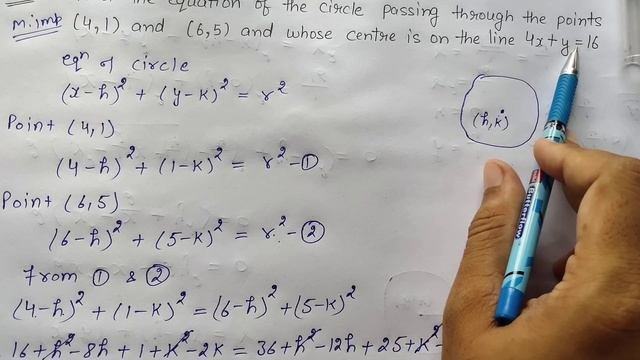 the equation of the circle passing through the points
m.imp (4,1) and (6,5) and whose centre is on the line 4x+y=16
eqⁿ of circle
(x-h)² + (y-k)² = r²
(h,k)
Point (4,1)
(4-h)² + (1-k)² = r² - ①
Point (6,5)
(6-h)² + (5-k)² = r² - ②
From ① & ②
(4-h)² + (1-k)² = (6-h)² + (5-k)²
16+h²-8h+1+k²-2k = 36+h²-12h+25+k²-